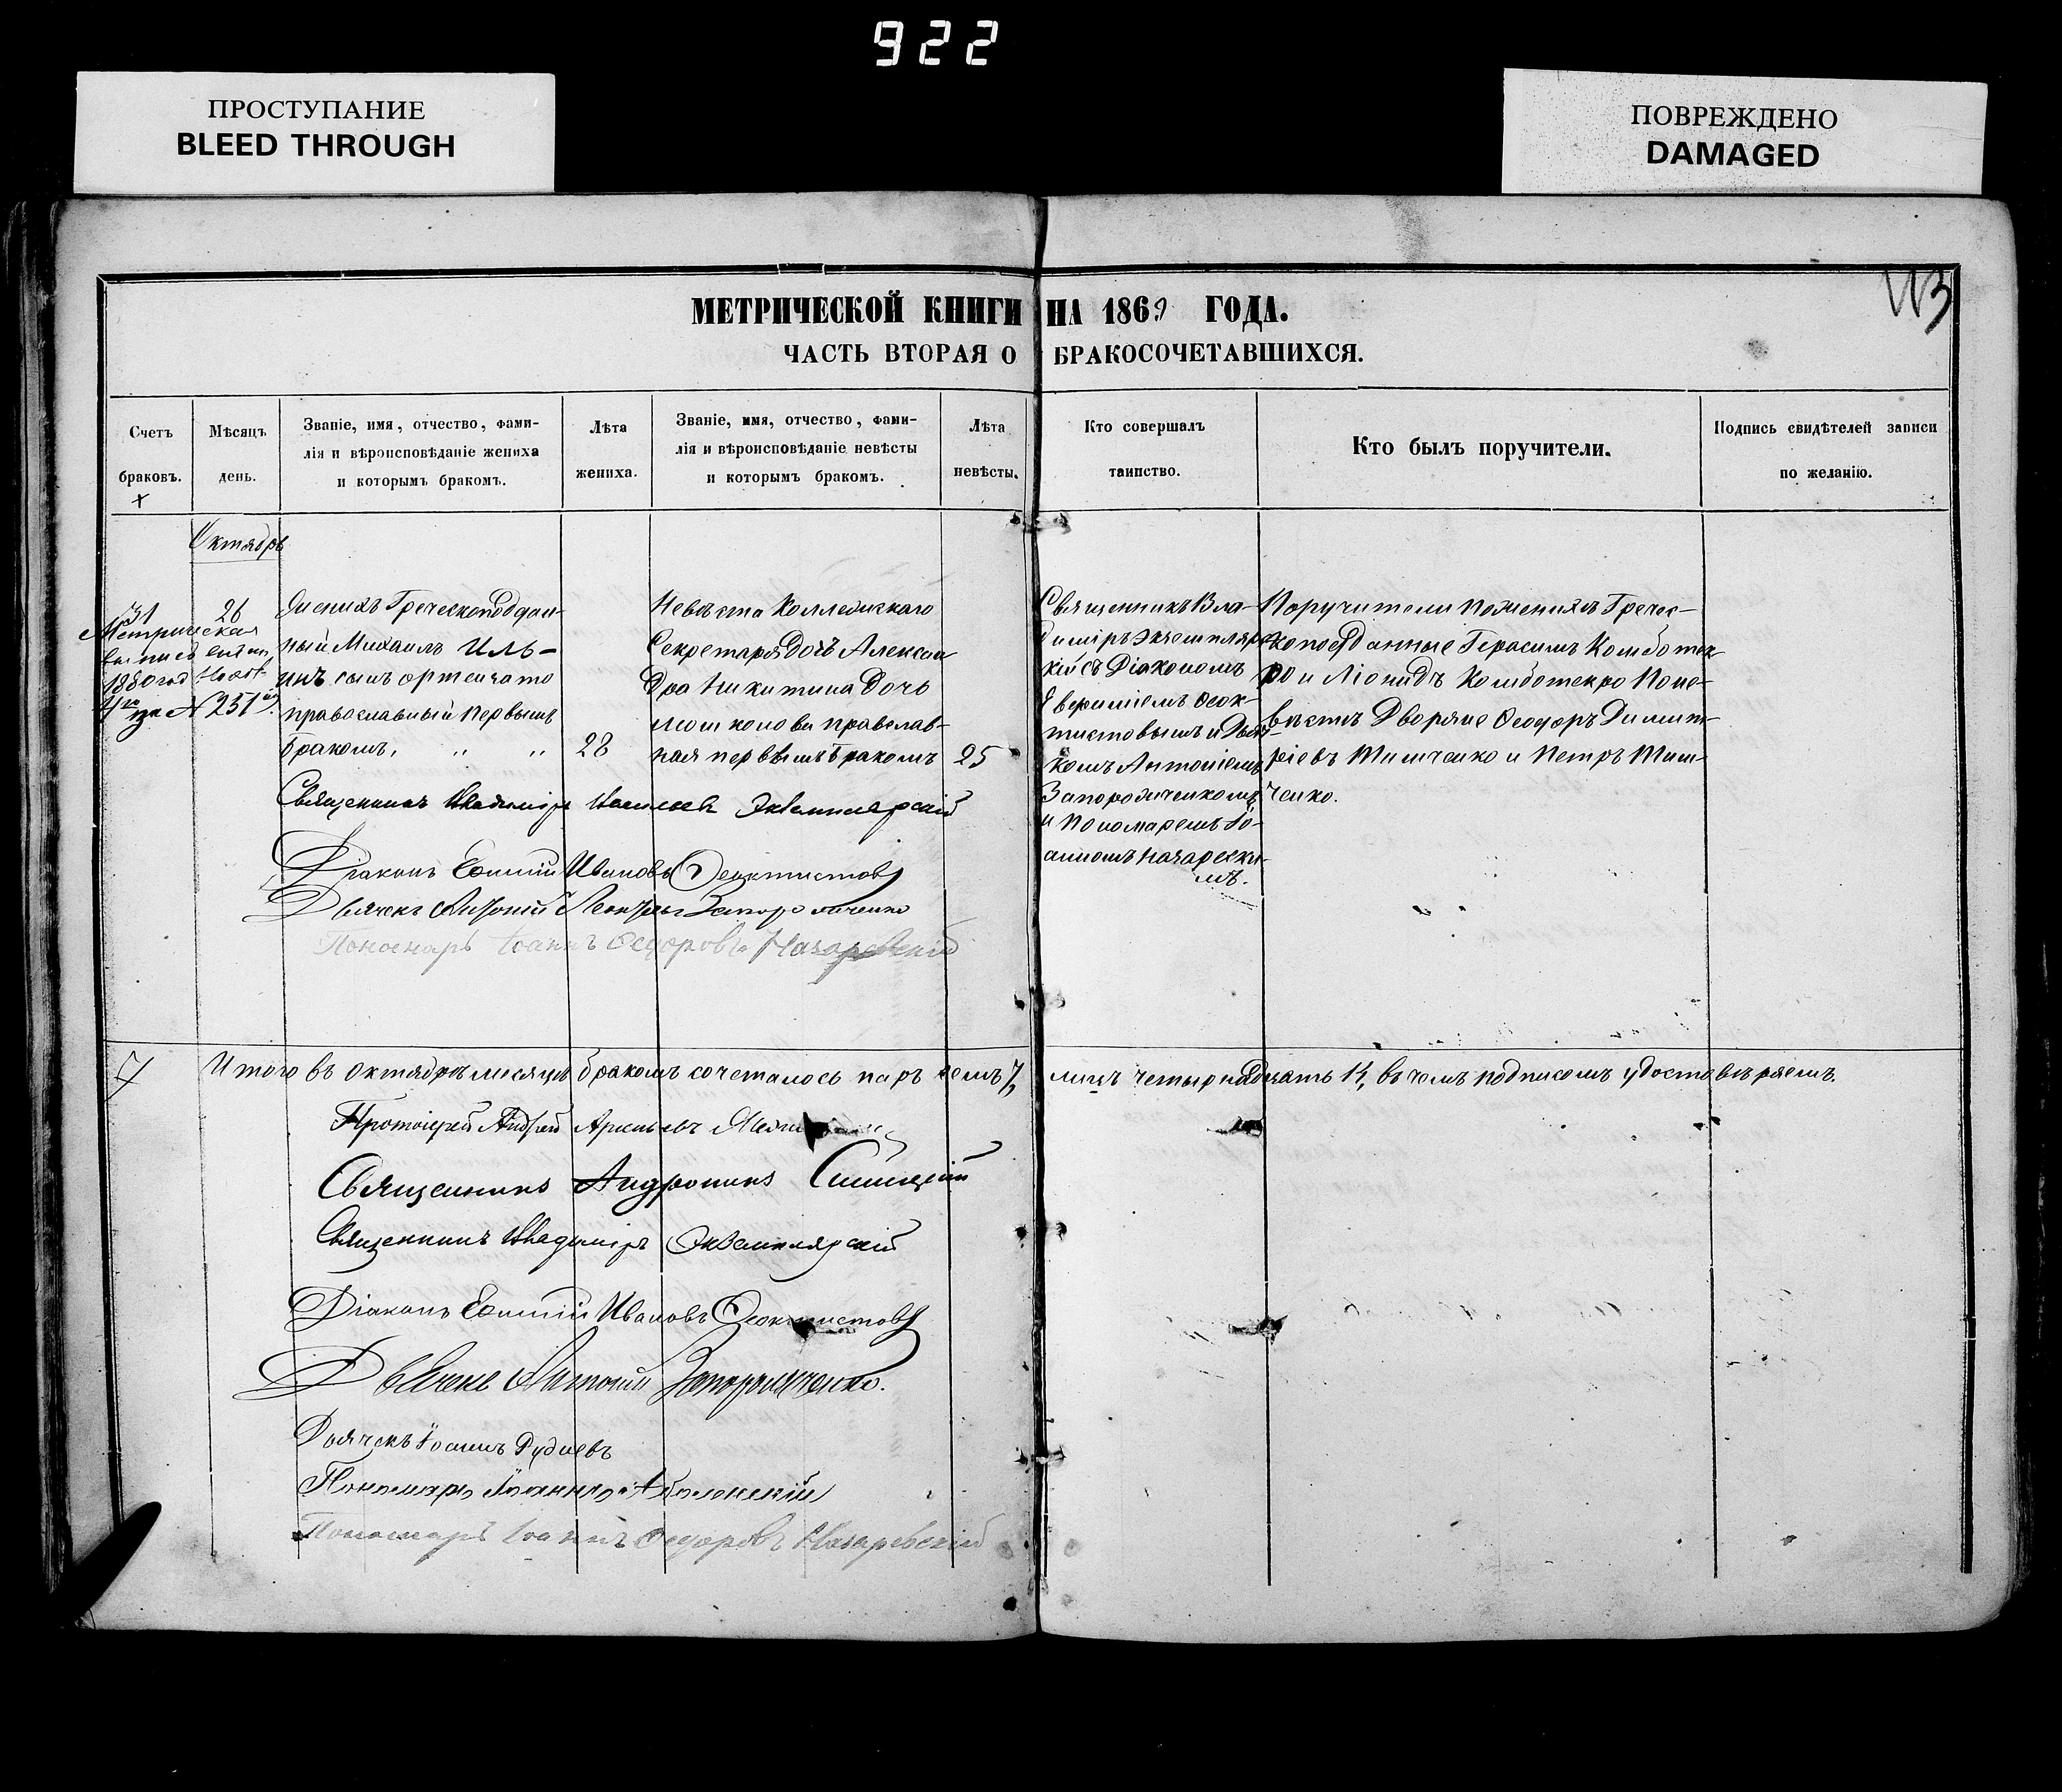 922
ПРОСТУПАНИЕ
BLEED THROUGH
ПОВРЕЖДЕНО
DAMAGED
113
МЕТРИЧЕСКОЙ КНИГИ НА 1869 ГОДА.
ЧАСТЬ ВТОРАЯ О БРАКОСОЧЕТАВШИХСЯ.
Счетъ
браковъ.
Мѣсяцъ
день.
Званіе, имя, отчество, фами-
лія и вѣроисповѣданіе жениха
и которымъ бракомъ.
Лѣта
жениха.
Званіе, имя, отчество, фами-
лія и вѣроисповѣданіе невѣсты
и которымъ бракомъ.
Лѣта
невѣсты.
Кто совершалъ
таинство.
Кто былъ поручители.
Подпись свидѣтелей записи
по желанію.
Октябрь
31
Метрическая
выпись
1880 год
за № 251
26
Женихъ Греческоподдан-
ный Михаилъ Иль-
инъ сынъ
православный первымъ
бракомъ, " "
28
Невѣста Коллежскаго
Секретаря Дочь Алексан
дра Никитина Дочь
православ-
ная первымъ бракомъ
25
Священникъ Вла-
диміръ Экземпляр
кій съ Діакономъ
Ѳеок-
тистовымъ и Дьяч-
комъ Антоніемъ
Запорожченкомъ
и Пономаремъ Іо-
анномъ Назаревски-
мъ.
Поручители по женихѣ Гречес-
коподданные Герасимъ Комботек
ро и Ліонидъ Комботекро По не-
вѣстѣ Дворяне Ѳеодоръ Димит-
ріевъ Тимченко и Петръ Тим-
ченко.
Священникъ Владиміръ Экземплярскій
Діаконъ Ивановъ Ѳеоктистовъ
Дьячекъ Антоній Запорожченко
Пономарь Іоаннъ Ѳедоровъ Назаревскій
7
Итого въ Октябрѣ месяцѣ бракомъ сочеталось паръ семь 7, лицъ четырнадцать 14, въ чемъ подписомъ удостовѣряемъ.
Протоіерей Андрей
Священникъ Андроникъ
Священникъ Владиміръ Экземплярскій
Діаконъ Ивановъ Ѳеоктистовъ
Дьячекъ Антоній Запорожченко.
Дьячекъ Іоаннъ Рудневъ
Пономарь Іоаннъ
Пономарь Іоаннъ Ѳедоровъ Назаревскій